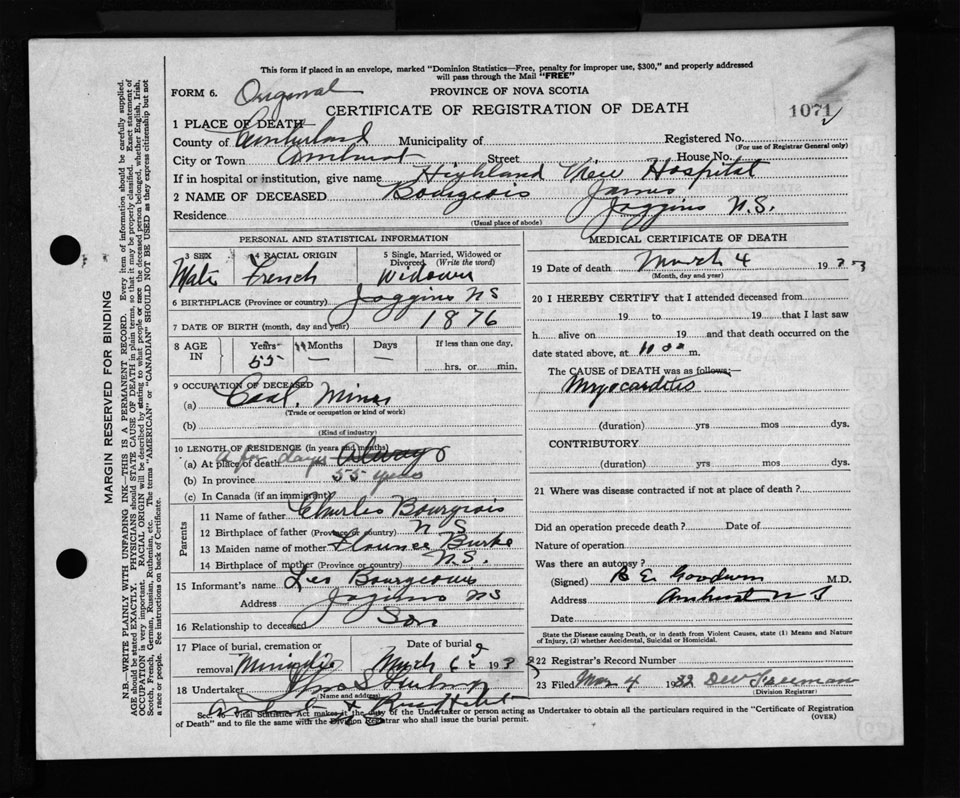 This form if placed in an envelope, marked "Dominion Statistics—Free, penalty for improper use, $300," and properly addressed
will pass through the Mail "FREE"
FORM 6. Original PROVINCE OF NOVA SCOTIA
CERTIFICATE OF REGISTRATION OF DEATH 1071
1 PLACE OF DEATH—
County of Cumberland Municipality of Registered No.
(For use of Registrar General only)
City or Town Amherst Street House No.
If in hospital or institution, give name Highland View Hospital
2 NAME OF DECEASED Bourgeois James
Residence Joggins N.S.
(Usual place of abode)
PERSONAL AND STATISTICAL INFORMATION
3 SEX 4 RACIAL ORIGIN 5 Single, Married, Widowed or Divorced (Write the word)
Male French Widower
6 BIRTHPLACE (Province or country) Joggins NS
7 DATE OF BIRTH (month, day and year) 1876
8 AGE IN Years Months Days If less than one day,
55 — — hrs. or min.
9 OCCUPATION OF DECEASED
(a) Coal Miner
(Trade or occupation or kind of work)
(b)
(Kind of industry)
10 LENGTH OF RESIDENCE (in years and months)
(a) At place of death a few days Always
(b) In province 55 years
(c) In Canada (if an immigrant)
Parents
11 Name of father Charles Bourgeois
12 Birthplace of father (Province or country) N S
13 Maiden name of mother Florence Burke
14 Birthplace of mother (Province or country) N.S.
15 Informant's name Leo Bourgeois
Address Joggins NS
16 Relationship to deceased Son
17 Place of burial, cremation or removal Date of burial
Minudie March 6 193
18 Undertaker
(Name and address)
MEDICAL CERTIFICATE OF DEATH
19 Date of death March 4 193
(Month, day and year)
20 I HEREBY CERTIFY that I attended deceased from
19 to 19 that I last saw
h alive on 19 and that death occurred on the
date stated above, at m.
The CAUSE of DEATH was as follows:—
Myocarditis
(duration) yrs mos dys.
CONTRIBUTORY
(duration) yrs mos dys.
21 Where was disease contracted if not at place of death?
Did an operation precede death? Date of
Nature of operation
Was there an autopsy?
(Signed) B E Goodwin M.D.
Address Amherst N S
Date
State the Disease causing Death, or in death from Violent Causes, state (1) Means and Nature
of Injury, (2) whether Accidental, Suicidal or Homicidal.
22 Registrar's Record Number
23 Filed Mar 4 1932 Freeman
(Division Registrar)
Sec. 16 Vital Statistics Act makes it the duty of the Undertaker or person acting as Undertaker to obtain all the particulars required in the "Certificate of Registration
of Death" and to file the same with the Division Registrar who shall issue the burial permit. (OVER)
MARGIN RESERVED FOR BINDING
N.B.—WRITE PLAINLY WITH UNFADING INK—THIS IS A PERMANENT RECORD. Every item of information should be carefully supplied.
AGE should be stated EXACTLY. PHYSICIANS should STATE CAUSE OF DEATH in plain terms, so that it may be properly classified. Exact statement of
OCCUPATION is very important. RACIAL ORIGIN will be described by stating to what people or race the deceased person belonged, whether English, Irish,
Scotch, French, German, Russian, Ruthenian, etc. The terms "AMERICAN" or "CANADIAN" SHOULD NOT BE USED as they express citizenship but not
a race or people. See instructions on back of Certificate.